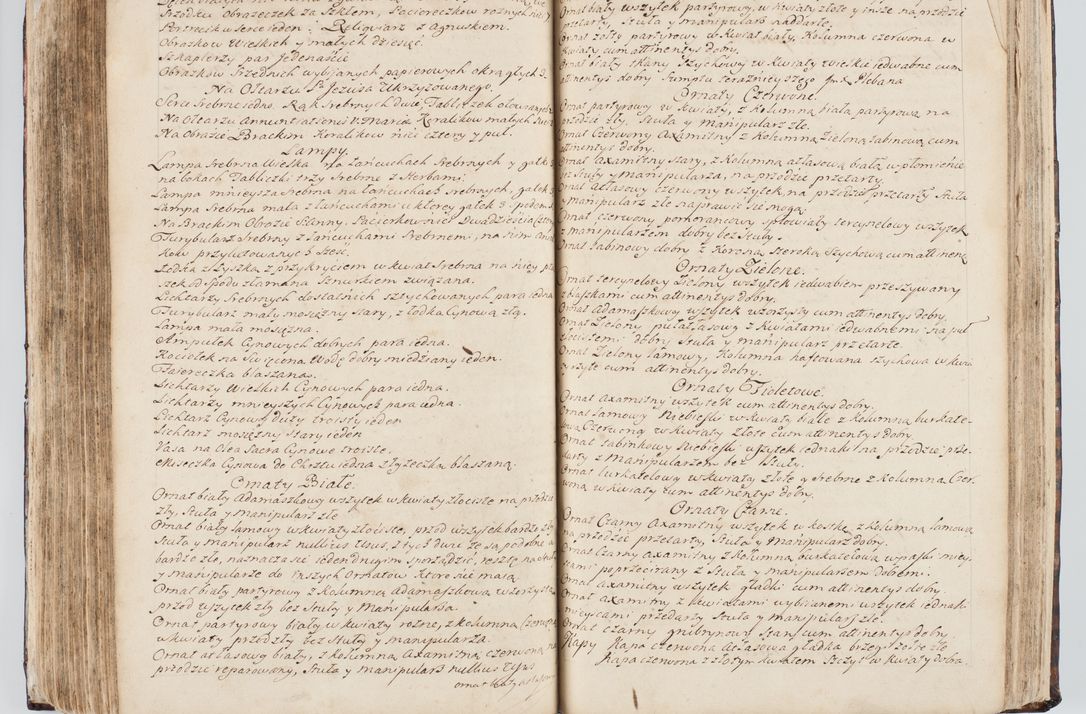 Przodku Obrazeczek za Szkłem, Pacioreczkow roznych nici 7
Portrecik w serce ieden. Reliquiarz z Agnuskiem.
Obrazkow Wielkich y małych dziesięc
Szkaplerzy par Jedenascie
Obrazkow Srzednich wybijanych papierowych okrągłych 3.
Na Ołtarzu Pa. Jezusa Ukrzyzowanego.
Serce Srebrne iedno. Rąk Srebrnych dwie, Tabliczek ołowianych
Na Ołtarzu Annuntiationis V. Maria Koralikow małych
Na Obrazie Brackim Koralikow nici cztery y puł.
Lampy.
Lampa Srebrna Wielka na Łancuchach Srebrnych y gałki 3
na bokach Tabliczki trzy Srebrne z Herbami
Lampa mnieysza Srebrna na łancuchach Srebrnych, gałek 3.
Lampa Srebrna mała z łancuchami u ktorey gałek 3. spodem
Na Brackim Obrazie Panny, Pacierkow nici Dwadziescia cztery
Turybularz Srebrny z Łancuchami Srebrnemi, na nim
kow przylutowanych Szesc.
Łodka z łyszką z przykryciem w kwiat Srebrna na niey
szek od spodu złamana Sznurkiem związana.
Lichtarzy Srebrnych dostatnich sztychowanych para iedna
Turybularz mały mosięzny stary, z łodką Cynową zły.
Lampa mała mosiązna.
Ampułek Cynowych dobrych para iedna.
Kociołek na Swięconą Wodę dobry miedziany ieden.
Taiereczka blaszana.
Lichtarzy Wielkich Cynowych para iedna.
Lichtarzy mnieyszych Cynowych para iedna.
Lichtarz Cynowy duzy troisty ieden
Lichtarz mosięzny Stary ieden
Vasa na Olea Sacra Cynowe troiste.
Miseczka Cynowa do Chrztu iedna z łyzeczką blaszaną.
Ornaty Białe.
Ornat biały Adamaszkowy wszytek w kwiaty złociste na przodzie
zły, Stuła y manipularz złe
Ornat biały lamowy w kwiaty złociste, przod wszytek bardzo zły
Stuła y manipularz nullius Usus, z tych dwu ze są podobne a
bardzo złe, naznacza się ieden drugim sporządzic, resztę na Stuły
y manipularze do inszych Ornatow ktore nie maią
Ornat biały partyrowy z Kolumną adamaszkową wzorzysty
przod wszytek zły bez Stuły y Manipularza.
Ornat partyrowy biały w kwiaty rozne, z kolumną czerwoną
w kwiaty przod zły bez Stuły y manipularza.
Ornat atłasowy biały, z kolumną Axamitną czerwoną na
przodzie reparowany, Stuła y manipularz nullius Usus
ornat biały atłasow
Ornat biały wszytek partyrowy, w kwiaty złote y insze na przodzie
przetarty, Stuła y manipularz naddarte.
Ornat złoty partyrowy w kwiat biały, Kolumna czerwona w
kwiaty cum attinentys dobry.
Ornat biały tkany Szychowy w kwiaty wielkie iedwabne cum
attinentys dobry Sumptu terazniejszego Plebana
Ornaty Czerwone.
Ornat partyrowy w kwiaty, z kolumną białą partyrową na
przodzie zły, Stuła y Manipularz złe.
Ornat Czerwony Axamitny z Kolumną Zieloną Tabinową cum
attinentys dobry.
Ornat Axamitny Stary, z Kolumną atłasową białą w płomienie
bez Stuły y Manipularza, na przodzie przetarty
Ornat Atłasowy czerwony wszytek na przodzie przetarty Stuła
y manipularz złe naprawic się mogą.
Ornat czerwony pomorancowy, wpłowiały tercynelowy wszytek
z manipularzem dobry bez Stuły.
Ornat Tabinowy dobry z Koroną Szeroką Szychową cum attinent.
Ornaty Zielone.
Ornat tercynelowy Zielony wszytek iedwabiem przeszywany
z blaszkami cum attinentys dobry.
Ornat Adamaszkowy wszytek wzorzysty cum attinentys dobry.
Ornat Zielony pułatłasowy z kwiatami iedwabnemi na puł
złocistemi dobry Stuła y manipularz przetarte.
Ornat Zielony lamowy, Kolumna haftowana szychowa w kwia
ty zyte cum attinentys dobry.
Ornaty Fioletowe.
Ornat Axamitny wszytek cum attinentys dobry.
Ornat lamowy Niebieski w kwiaty białe z Kolumną burkate-
lową Czerwoną w kwiaty złote cum attinentys dobry
Ornat Tabinkowy Niebieski wszytek iednaki na przodzie prze-
tarty z Manipularzem bez Stuły.
Ornat burkatelowy w kwiaty złote y Srebrne z Kolumną Czer-
woną w kwiaty cum attinentys dobry.
Ornaty Czarne.
Ornat Czarny Axamitny wszytek w kostkę z Kolumną lamową
na przodzie przetarty, Stuła y Manipularz dobry.
Ornat Czarny Axamitny z Kolumną burkatelową Turecki miey-
scami poprzecirany z Stułą y manipularzem dobremi.
Ornat Axamitny wszytek gładki cum attinentys dobry.
Ornat axamitny z kwiatami wybijanemi wszytek iednaki
mieyscami przedarty Stuła y manipularz złe.
Ornat czarny grubrynowy Stary cum attinentys dobry.
Kapy Kapa czerwona Atłasowa gładka brzegi zołte złe
Kapa czerwona z złotym kwiatem Szczyt w kwiaty dobra.